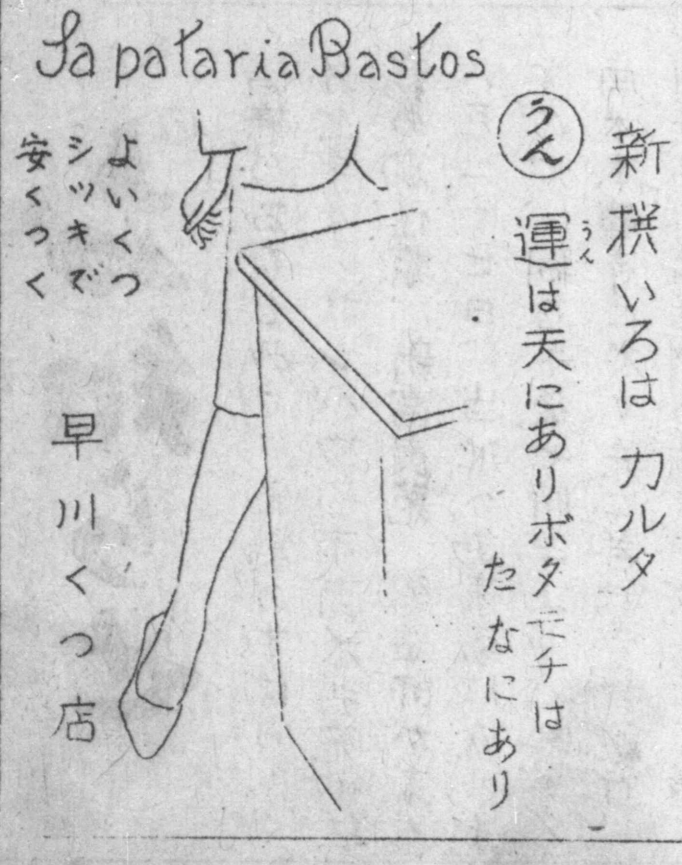 Sapataria Bastos
新撰いろはカルタ
うん
運は天にありボタモチは
うん
たなにあり
よいくつ
シツキで
安くつく
早川くつ店